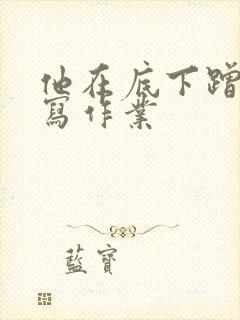 他在底下蹭
寫作業
藍寶